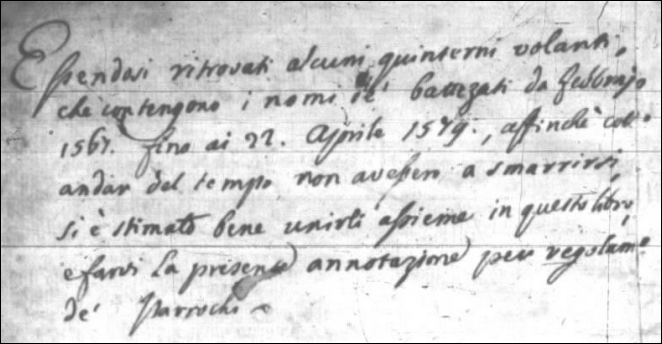 Essendosi ritrovati alcuni quinterni volanti,
che contengono i nomi de' battezati da Febbrajo
1567. fino ai 22. Aprile 1579., affinchè coll'
andar del tempo non avessero a smarrirsi,
si è stimato bene unirli assieme in questo libro,
e farvi la presente annotazione per regolam.º
de' Parrochi